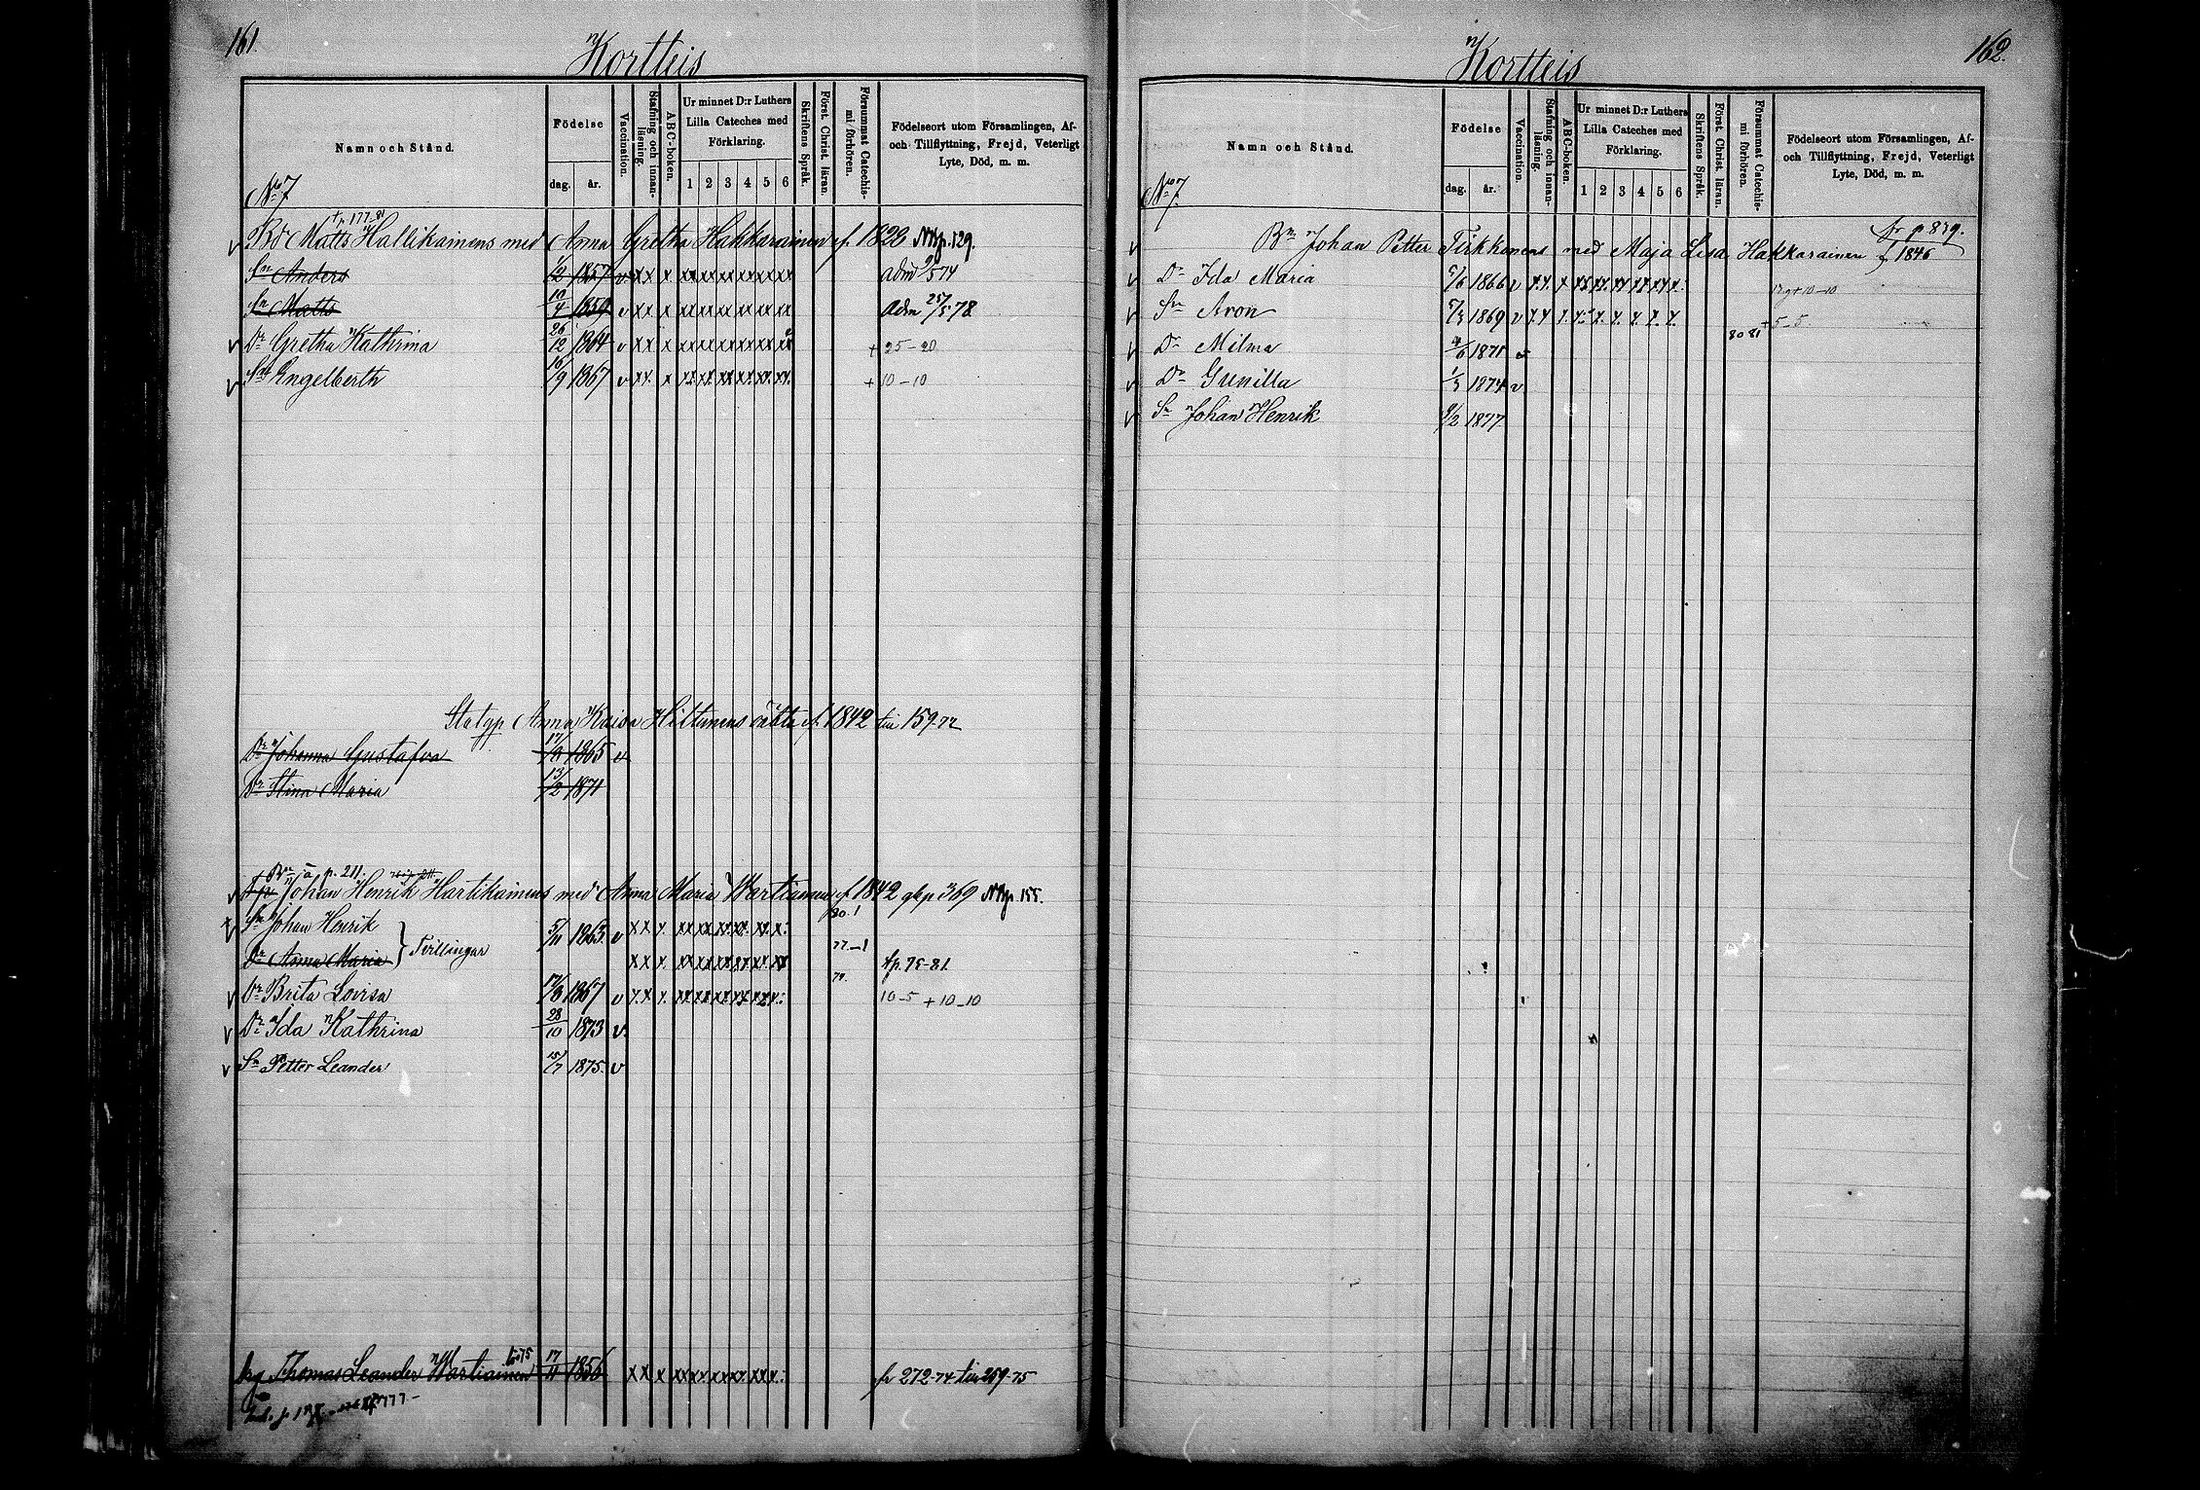 161.
Kortteis
Namn och Stånd.
Födelse
dag. år.
Vaccination.
Stafning och innan-läsning.
ABC-boken.
Ur minnet D:r Luthers
Lilla Cateches med
Förklaring.
1 2 3 4 5 6
Skriftens Språk.
Först. Christ. läran.
Försummat Catechis-mi förhören.
Födelseort utom Församlingen, Af-
och Tillflyttning, Frejd, Veterligt
Lyte, Död, m. m.
No 7
177-81
Matts Hallikainens med Anna Gretha Hakkarainen f. 1822 p. 129.
Sn Anders 1857 v x x x adm 5 74
Sn Matts 1859 v x x x adm 25/5 78
Dr Gretha Kathrina 26/12 1864 v x x x + 25-20
Sn Engelberth 16/9 1867 v x x x + 10-10
Anna Kaisa Hiltunens f. 1842 159-72
Dr Johanna Gustafva 1865 v
Dr Stina Maria 13/2 1871
p. 211.
Johan Henrik Hartikainens med Anna Maria Wartiainen f. 1842 369 p. 155.
Sn Johan Henrik 5/11 1863 v x x x
Tvillingar
Dr Anna Maria x x x 77-1 75-81
Dr Brita Lovisa 1867 v x x x 10-5 + 10-10
Dr Ida Kathrina 28/10 1873 v.
Sn Petter Leander 15/7 1875. v
Thomas Leander Wartiainen 17/11 1856 x x x 272-74 259-75
162.
Kortteis
Namn och Stånd.
Födelse
dag. år.
Vaccination.
Stafning och innan-läsning.
ABC-boken.
Ur minnet D:r Luthers
Lilla Cateches med
Förklaring.
1 2 3 4 5 6
Skriftens Språk.
Först. Christ. läran.
Försummat Catechis-mi förhören.
Födelseort utom Församlingen, Af-
och Tillflyttning, Frejd, Veterligt
Lyte, Död, m. m.
No 7
fr p 839.
Bn Johan Petter Tirkkonens med Maja Lisa Hakkarainen f. 1846
Dr Ida Maria 5/6 1866 v x x x + 10-10
Sn Aron 1869 v x x 80 81 + 5-5.
Dr Milma 1871 v
Dr Gunilla 1874 v
Sn Johan Henrik 8/2 1877